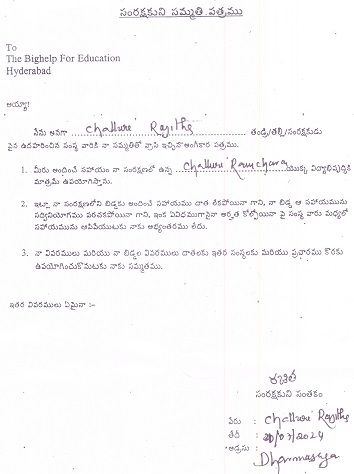 సంరక్షకుని సమ్మతి పత్రము
To
The Bighelp For Education
Hyderabad
అయ్యా!
నేను అనగా Challuri Rajitha తండ్రి/తల్లి/సంరక్షకుడు
పైన ఉదహరించిన సంస్థ వారికి నా సమ్మతితో వ్రాసి ఇచ్చిన అంగీకార పత్రము.
1. మీరు అందించే సహాయం నా సంరక్షణలో ఉన్న Challuri Ramcharan యొక్క విద్యాభివృద్ధికి
మాత్రమే ఉపయోగిస్తాను.
2. ఇట్లా నా సంరక్షణలోని బిడ్డకు అందించే సహాయము దాత లేకపోయినా గాని, నా బిడ్డ ఆ సహాయమును
సద్వినియోగము పరచకపోయినా గాని, ఇంక ఏవిధముగానైనా అర్హత కోల్పోయినా పై సంస్థ వారు మధ్యలో
సహాయమును ఆపివేయుటకు నాకు అభ్యంతరము లేదు.
3. నా వివరములు మరియు నా బిడ్డల వివరములు దాతలకు ఇతర సంస్థలకు మరియు ప్రచారము కొరకు
ఉపయోగించుకొనుటకు నాకు సమ్మతము.
ఇతర వివరములు ఏమైనా :-
రజిత
సంరక్షకుని సంతకం
పేరు : Challuri Rajitha
తేదీ : 20/07/2024
అడ్రసు :